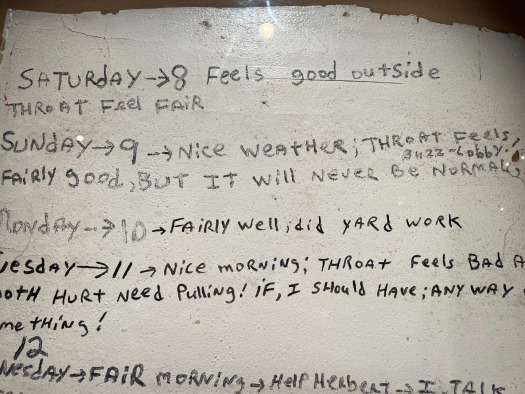 SATURDAY → 8 Feels good outside
THROAT Feel FAIR
SUNDAY → 9 → Nice WEATHER; THROAT Feels,
3422-Lobby!
FAIRLY good, BUT IT will Never Be NORMAL;
MONDAY → 10 → FAIRLY well; did YARD WORK
UESDAY → 11 → Nice MORNING; THROAT Feels BAD A
OTH HURT Need Pulling! iF, I SHould HAVE; ANY WAY
me THING!
12
NESDAY → FAIR MORNING → Help HerBERT → I TALK